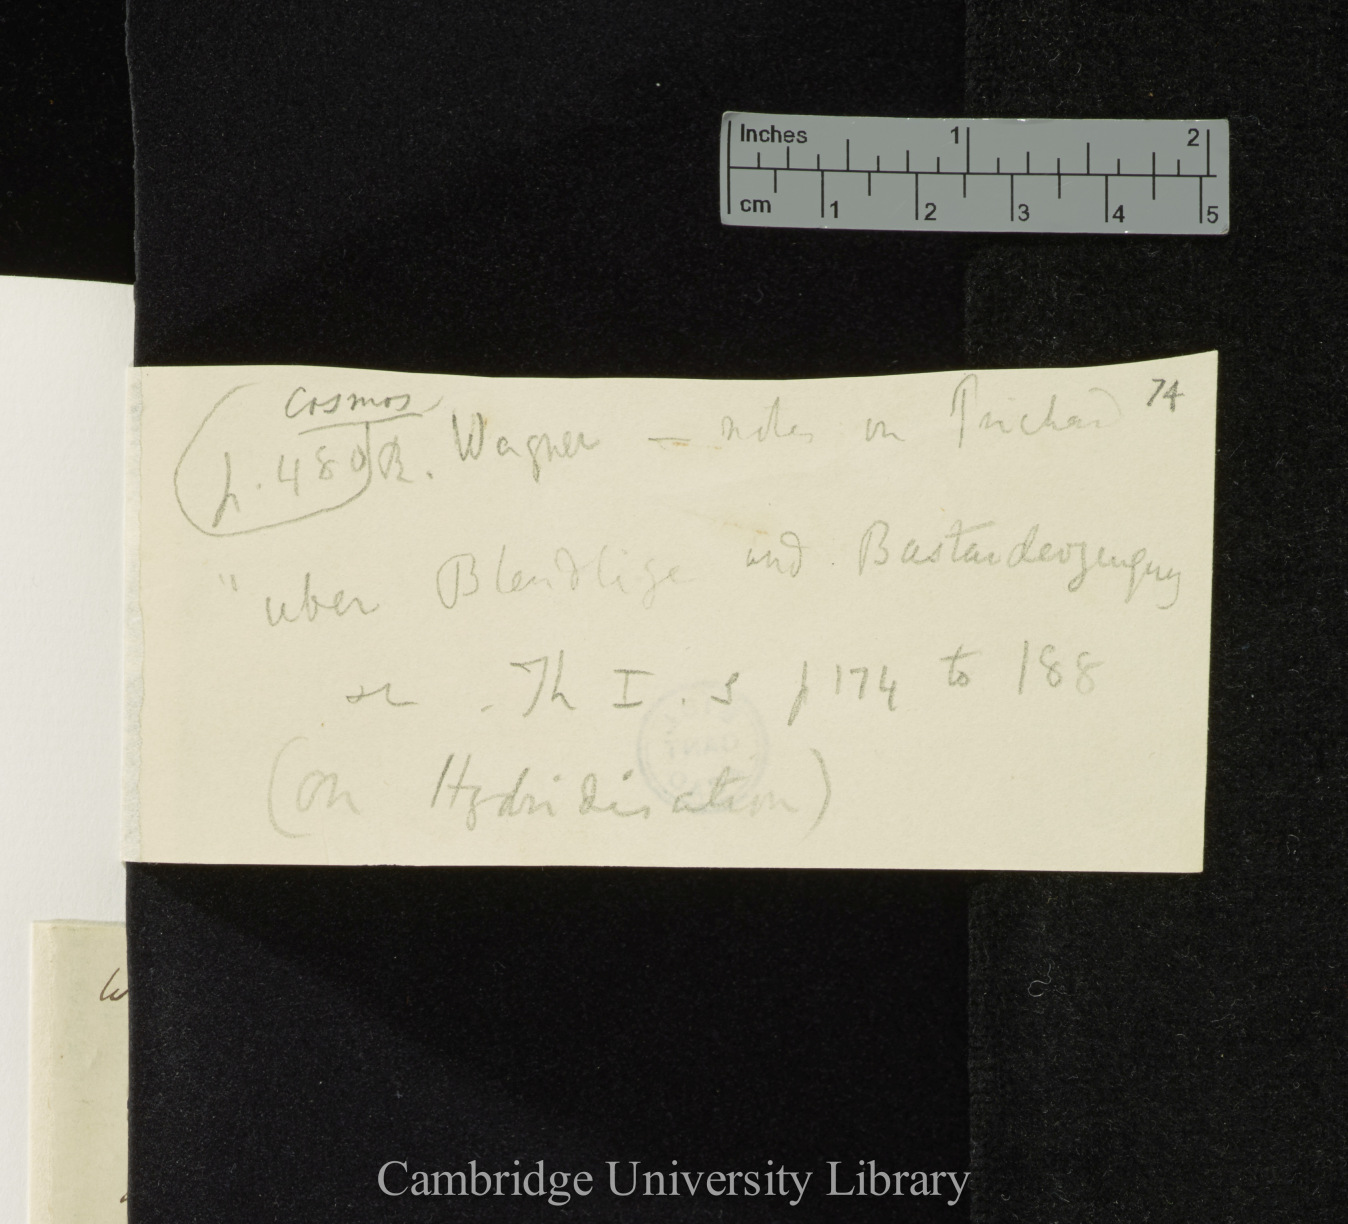 Inches 1 2
cm 1 2 3 4 5
74
Cosmos
p. 480 R. Wagner — notes on Prichard
" uber Blendlige und Bastarderzeugung
Th I . S p 174 to 188
(on Hybridisation)
Cambridge University Library